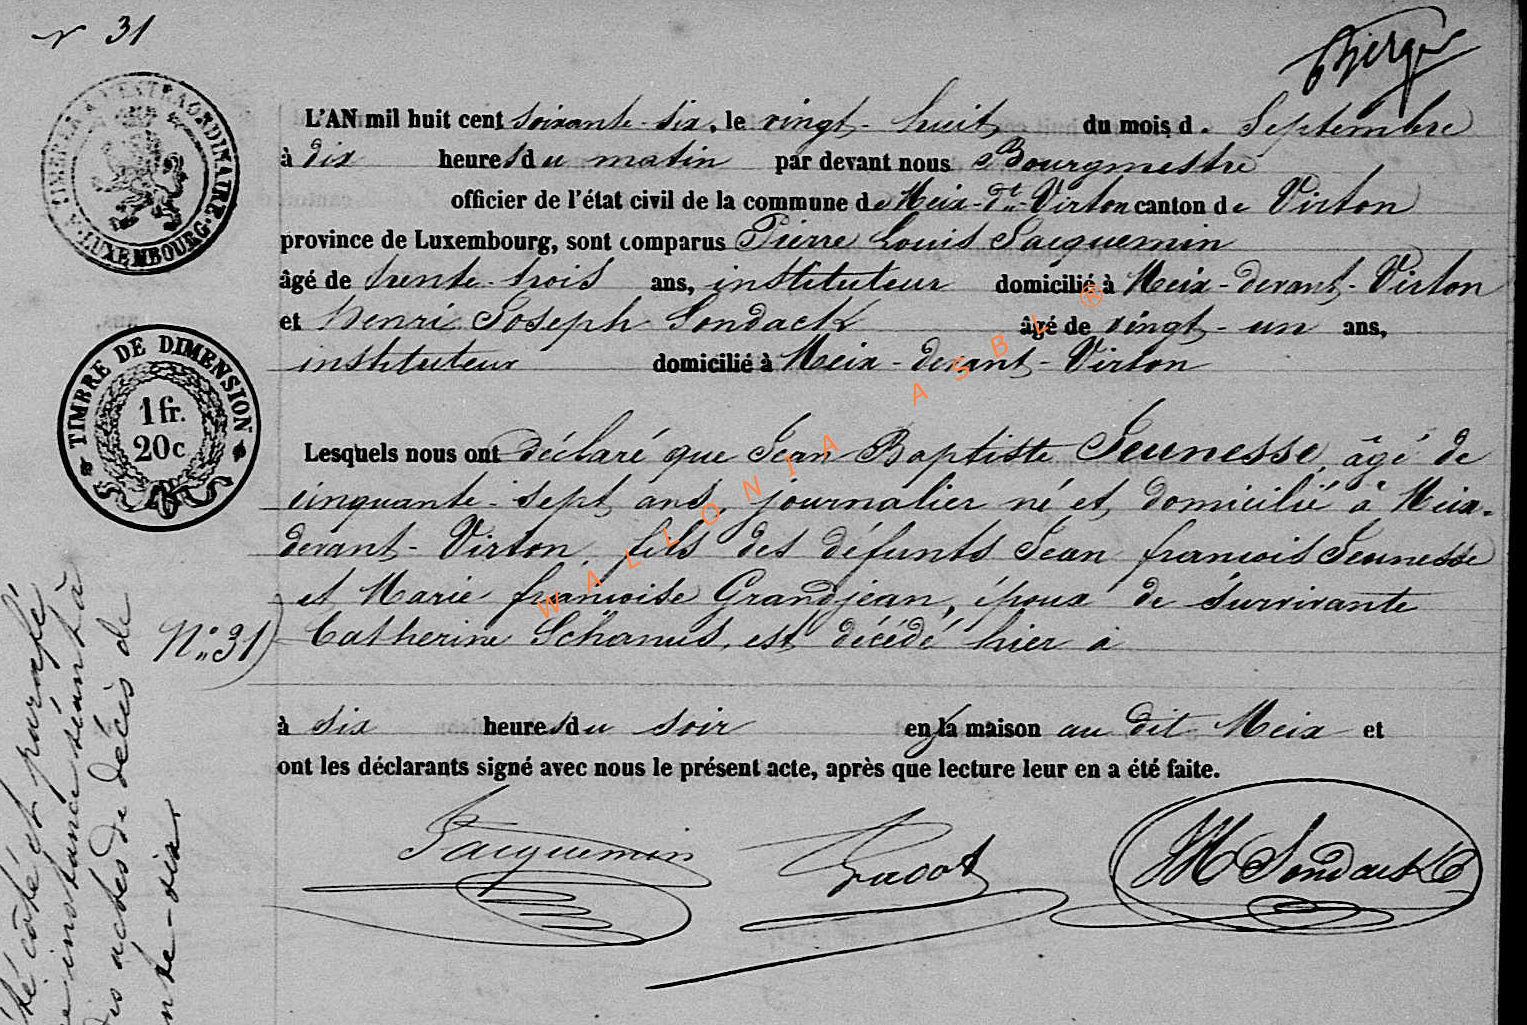 n° 31
TIMBRE A L'EXTRAORDINAIRE
LUXEMBOURG
L'AN mil huit cent soixante-six, le vingt-huit du mois d. Septembre
à dix heures du matin par devant nous Bourgmestre
officier de l'état civil de la commune de Meix-dt-Virton canton de Virton
province de Luxembourg, sont comparus Pierre Louis Jacquemin
âgé de trente-trois ans, instituteur domicilié à Meix-devant-Virton
et Henri Joseph Sondack âgé de vingt-un ans,
instituteur domicilié à Meix-devant-Virton
TIMBRE DE DIMENSION
1 fr.
20c
Lesquels nous ont déclaré que Jean Baptiste Jeunesse, âgé de
cinquante-sept ans, journalier né et domicilié à Meix-
devant-Virton, fils des défunts Jean françois Jeunesse
et Marie françoise Grandjean, époux de survivante
N° 31) Catherine Schanus, est décédé hier à
à six heures du soir en la maison au dit Meix et
ont les déclarants signé avec nous le présent acte, après que lecture leur en a été faite.
Jacquemin
HJ Sondack
WALLONIA ASBL ®
côté et paraphé
instance séant à
actes de décès de